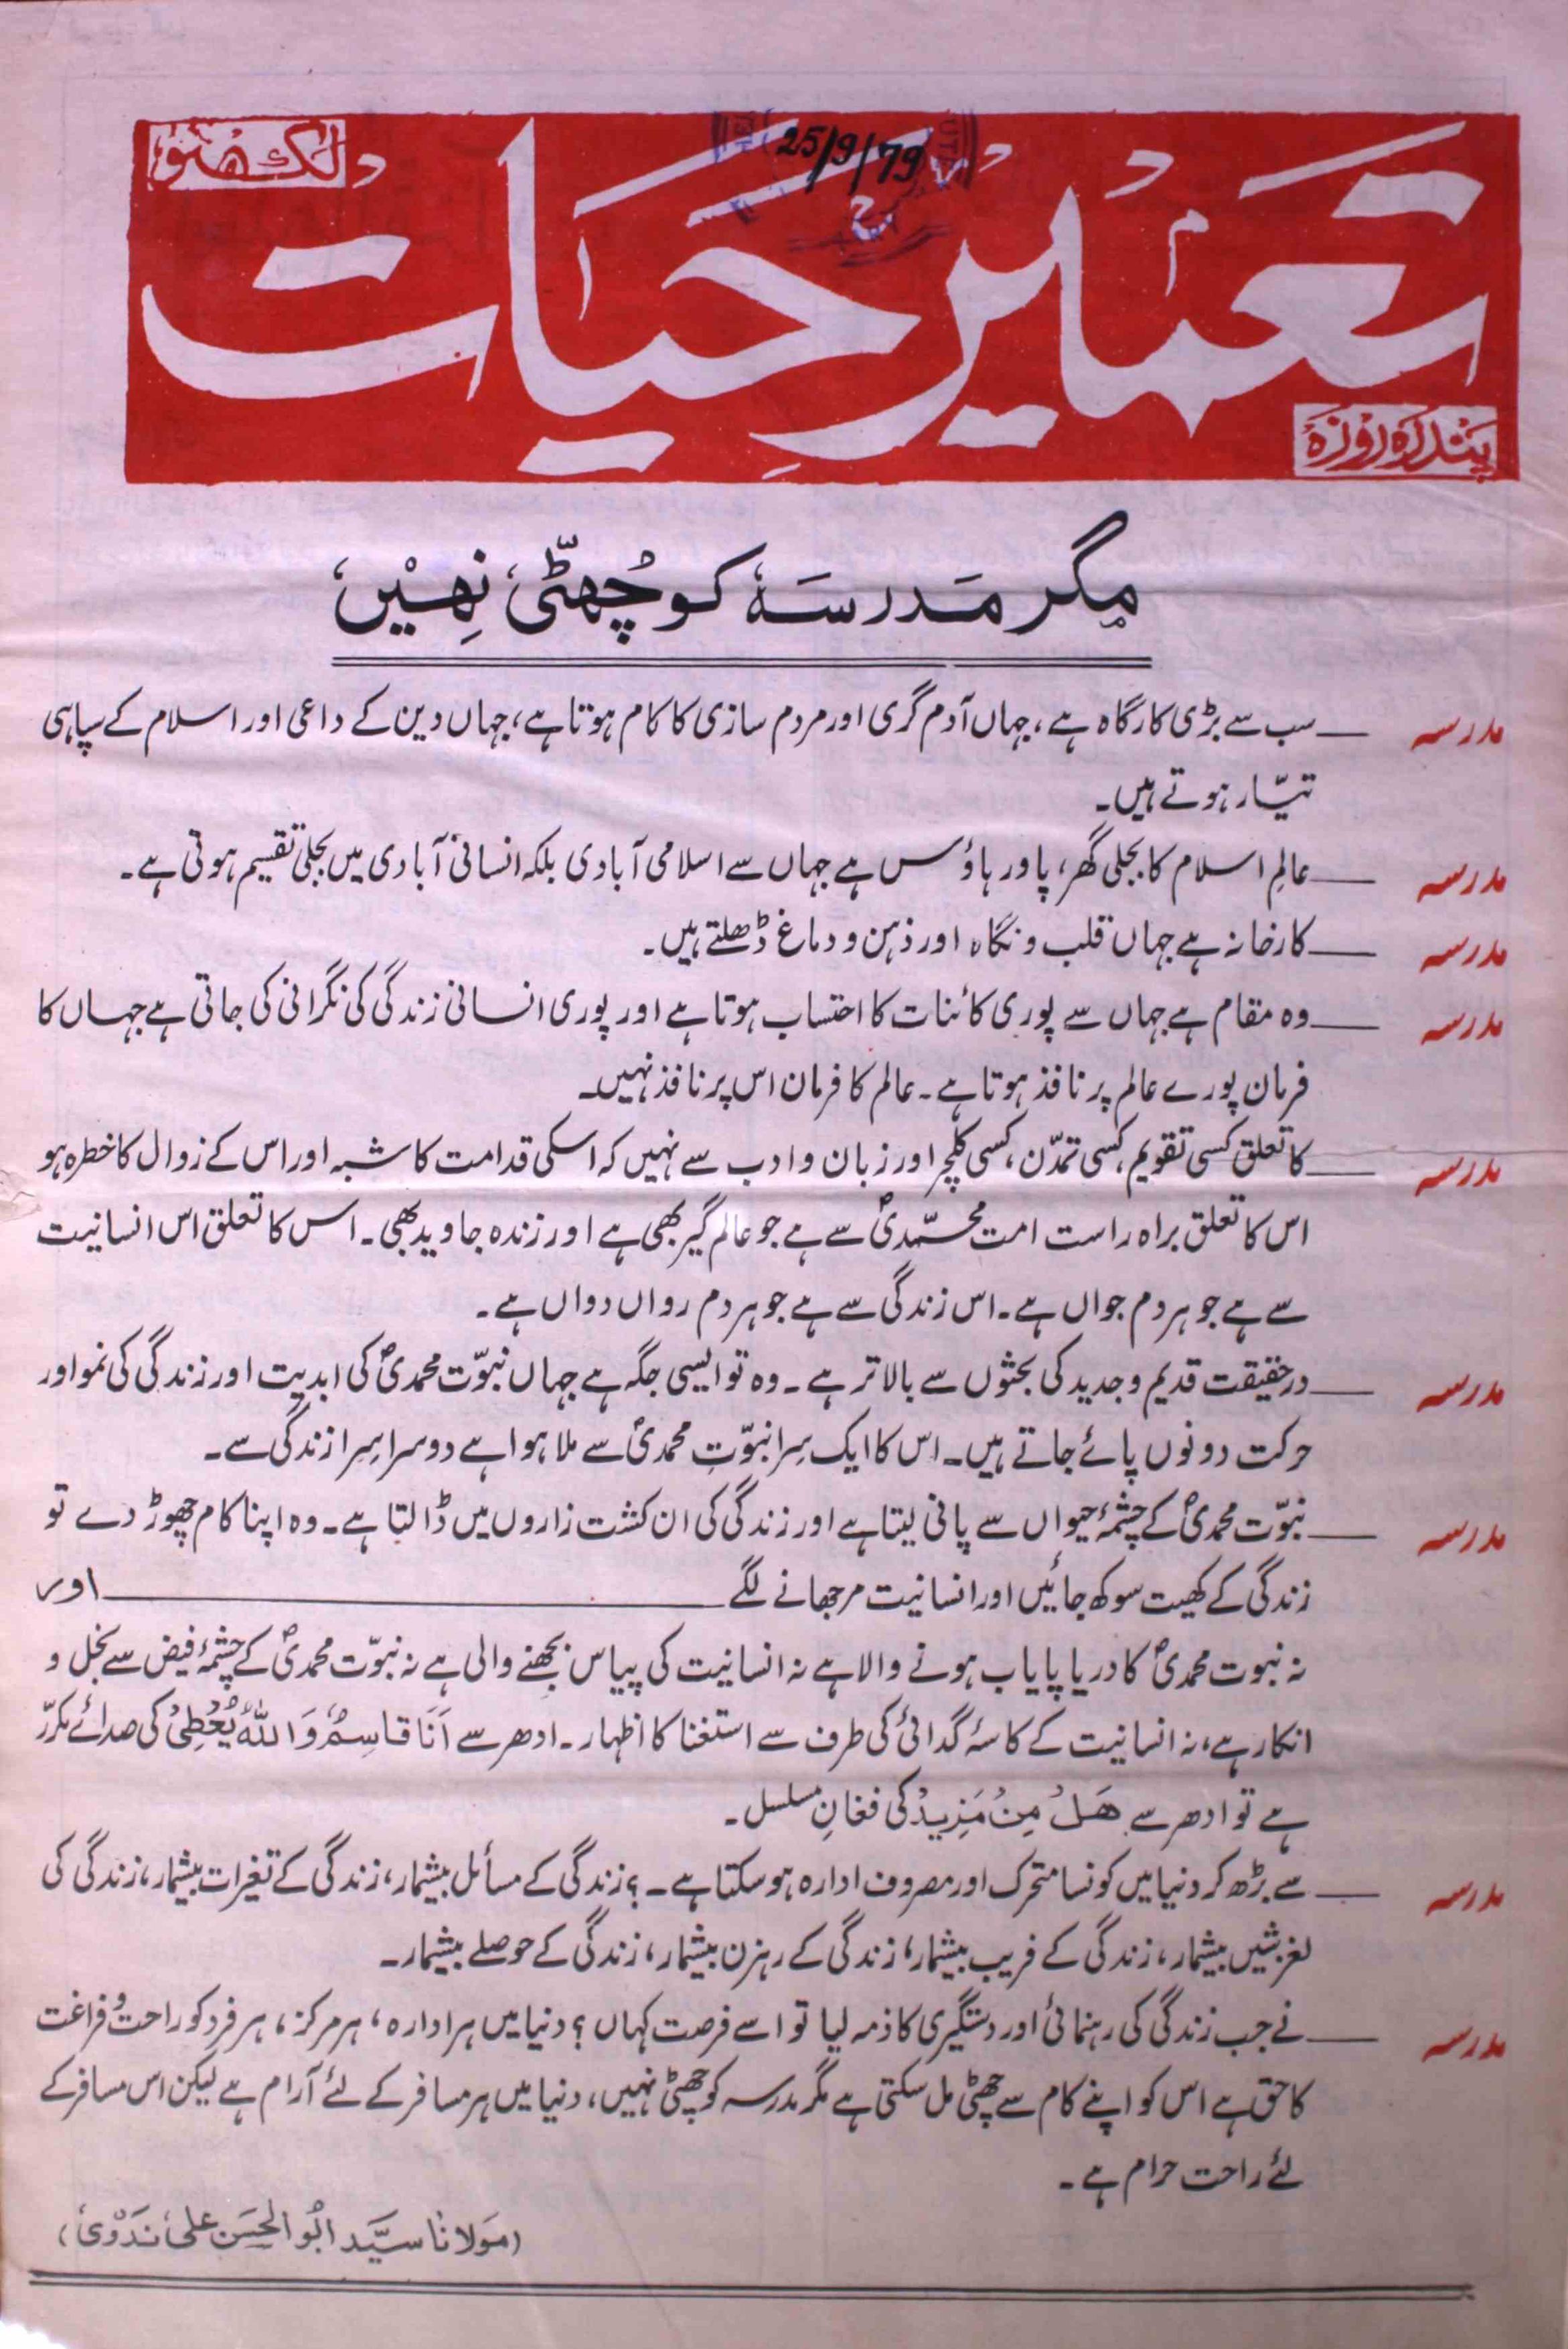 لکھنؤ
25/9/79
تعمیر حیات
پندرہ روزہ
مگر مدرسہ کو چھٹی نہیں
مدرسہ — سب سے بڑی کارگاہ ہے، جہاں آدم گری اور مردم سازی کا کام ہوتا ہے، جہاں دین کے داعی اور اسلام کے سپاہی
تیّار ہوتے ہیں۔
مدرسہ — عالمِ اسلام کا بجلی گھر، پاور ہاؤس ہے جہاں سے اسلامی آبادی بلکہ انسانی آبادی میں بجلی تقسیم ہوتی ہے۔
مدرسہ — کارخانہ ہے جہاں قلب و نگاہ اور ذہن و دماغ ڈھلتے ہیں۔
مدرسہ — وہ مقام ہے جہاں سے پوری کائنات کا احتساب ہوتا ہے اور پوری انسانی زندگی کی نگرانی کی جاتی ہے جہاں کا
فرمان پورے عالم پر نافذ ہوتا ہے۔ عالم کا فرمان اس پر نافذ نہیں۔
مدرسہ — کا تعلق کسی تقویم، کسی تمدّن، کسی کلچر اور زبان و ادب سے نہیں کہ اسکی قدامت کا شبہ اور اس کے زوال کا خطرہ ہو
اس کا تعلق براہ راست امت محمّدیؐ سے ہے جو عالم گیر بھی ہے اور زندہ جاوید بھی۔ اس کا تعلق اس انسانیت
سے ہے جو ہر دم جواں ہے۔ اس زندگی سے ہے جو ہر دم رواں دواں ہے۔
مدرسہ — درحقیقت قدیم و جدید کی بحثوں سے بالاتر ہے۔ وہ تو ایسی جگہ ہے جہاں نبوّت محمدیؐ کی ابدیت اور زندگی کی نمو اور
حرکت دونوں پائے جاتے ہیں۔ اس کا ایک سِرا نبوّتِ محمدیؐ سے ملا ہوا ہے دوسرا سِرا زندگی سے۔
مدرسہ — نبوّت محمدیؐ کے چشمۂ حیواں سے پانی لیتا ہے اور زندگی کی ان کشت زاروں میں ڈالتا ہے۔ وہ اپنا کام چھوڑ دے تو
زندگی کے کھیت سوکھ جائیں اور انسانیت مرجھانے لگے — اور
نہ نبوت محمدیؐ کا دریا پایاب ہونے والا ہے نہ انسانیت کی پیاس بجھنے والی ہے نہ نبوّت محمدیؐ کے چشمۂ فیض سے بخل و
انکار ہے، نہ انسانیت کے کاسۂ گدائی کی طرف سے استغنا کا اظہار۔ ادھر سے اَنَا قَاسِمٌ وَ اللّٰہُ یُعْطِیْ کی صدائے مکرّر
ہے تو ادھر سے ھَلْ مِنْ مَزِیدْ کی فغانِ مسلسل۔
مدرسہ — سے بڑھ کر دنیا میں کونسا متحرک اور مصروف ادارہ ہو سکتا ہے۔؟ زندگی کے مسائل بیشمار، زندگی کے تغیرات بیشمار، زندگی کی
لغزشیں بیشمار، زندگی کے فریب بیشمار، زندگی کے رہزن بیشمار، زندگی کے حوصلے بیشمار۔
مدرسہ — نے جب زندگی کی رہنمائی اور دستگیری کا ذمہ لیا تو اسے فرصت کہاں؟ دنیا میں ہر ادارہ، ہر مرکز، ہر فرد کو راحت و فراغت
کا حق ہے اس کو اپنے کام سے چھٹی مل سکتی ہے مگر مدرسہ کو چھٹی نہیں، دنیا میں ہر مسافر کے لئے آرام ہے لیکن اس مسافر کے
لئے راحت حرام ہے۔
(مولانا سیّد ابوالحسن علی ندوی)